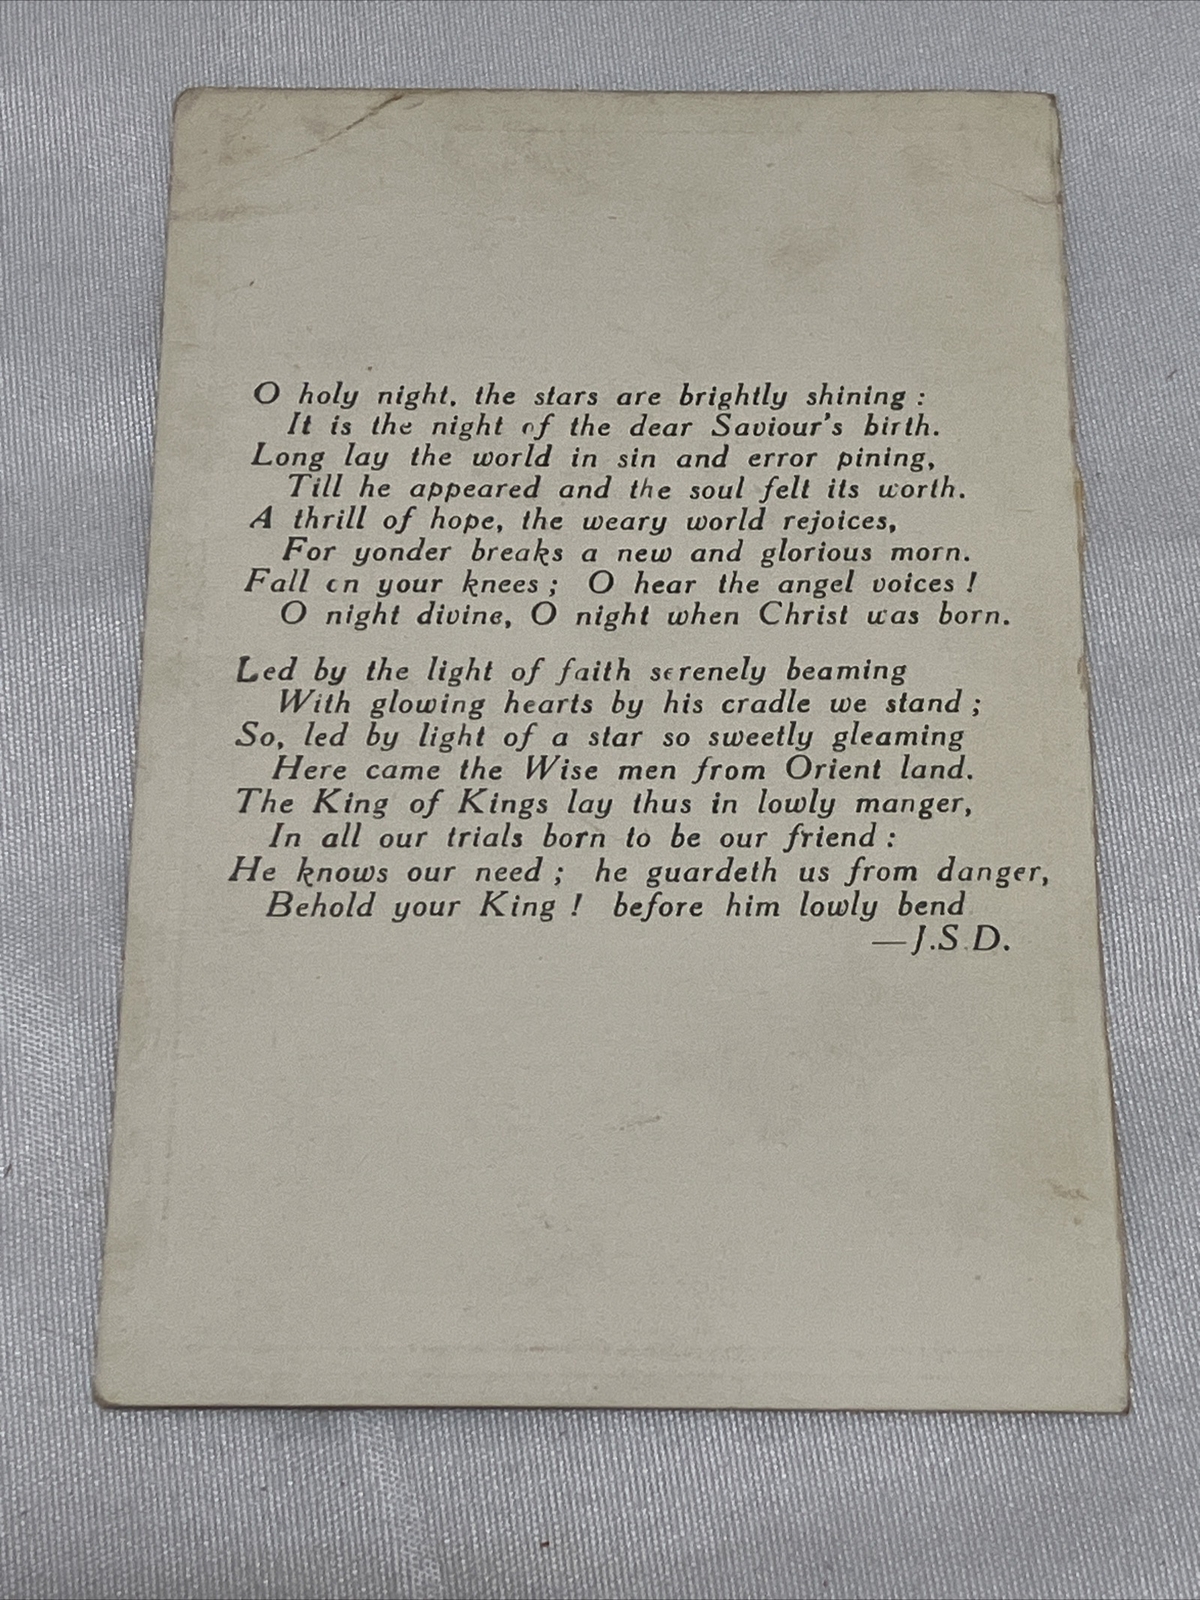 O holy night, the stars are brightly shining :
It is the night of the dear Saviour's birth.
Long lay the world in sin and error pining,
Till he appeared and the soul felt its worth.
A thrill of hope, the weary world rejoices,
For yonder breaks a new and glorious morn.
Fall on your knees ; O hear the angel voices !
O night divine, O night when Christ was born.
Led by the light of faith serenely beaming
With glowing hearts by his cradle we stand ;
So, led by light of a star so sweetly gleaming
Here came the Wise men from Orient land.
The King of Kings lay thus in lowly manger,
In all our trials born to be our friend :
He knows our need ; he guardeth us from danger,
Behold your King ! before him lowly bend
—J.S.D.